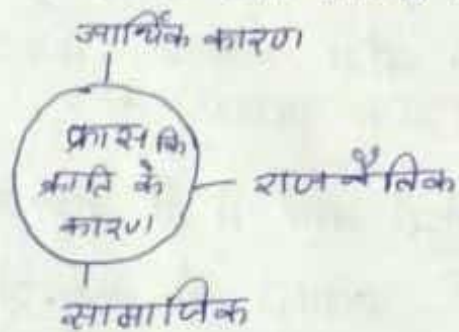 आर्थिक कारण
फ्रास कि
क्राति के
कारण
राजनैतिक
सामाजिक